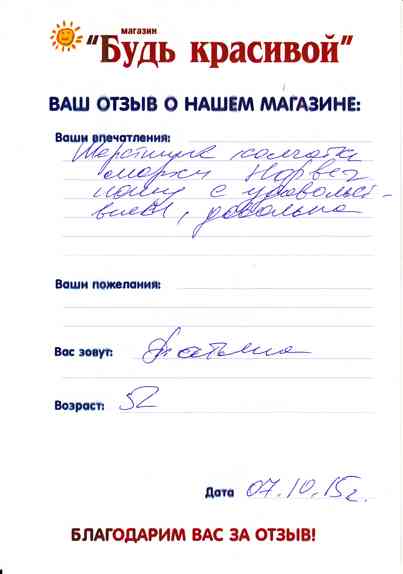 магазин
"Будь красивой"
ВАШ ОТЗЫВ О НАШЕМ МАГАЗИНЕ:
Ваши впечатления:
Шерстяные колготки
марки Норвег
ношу с удовольст-
вием, довольна
Ваши пожелания:
Вас зовут: Татьяна
Возраст: 52
Дата 07.10.15г.
БЛАГОДАРИМ ВАС ЗА ОТЗЫВ!